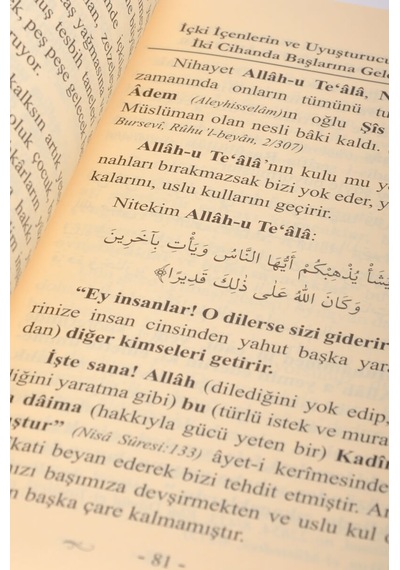 mde, içki
man, zelzel
as yağmasın
nuş tesbih tanele
k, peş peşe gelecek
ruyor.
kalksın artık ye
oluk çocuk,
kârların yer
İçki İçenlerin ve Uyuşturucu
İki Cihanda Başlarına Gele
Nihayet Allâh-u Te‘âlâ, N
zamanında onların tümünü tu
Âdem (Aleyhisselâm)ın oğlu Şîs
Müslüman olan nesli bâki kaldı.
Bursevî, Rûhu'l-beyân, 2/307)
Allâh-u Te‘âlâ’nın kulu mu y
nahları bırakmazsak bizi yok eder, y
kalarını, uslu kullarını geçirir.
Nitekim Allâh-u Te‘âlâ:
يَشَأْ يُذْهِبْكُمْ أَيُّهَا النَّاسُ وَيَأْتِ بِآخَرِينَ
وَكَانَ اللهُ عَلَى ذٰلِكَ قَدِيرًا﴾
“Ey insanlar! O dilerse sizi giderir
rinize insan cinsinden yahut başka yara
dan) diğer kimseleri getirir.
İşte sana! Allâh (dilediğini yok edip,
diğini yaratma gibi) bu (türlü istek ve mura
daima (hakkıyla gücü yeten bir) Kadîr
ştur” (Nisâ Sûresi:133) âyet-i kerîmesinde
kati beyan ederek bizi tehdit etmiştir. Ar
ızı başımıza devşirmekten ve uslu kul o
n başka çare kalmamıştır.
- 81 -